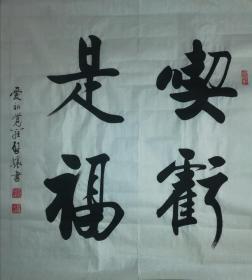 喫虧
是福
愛新覺羅
書